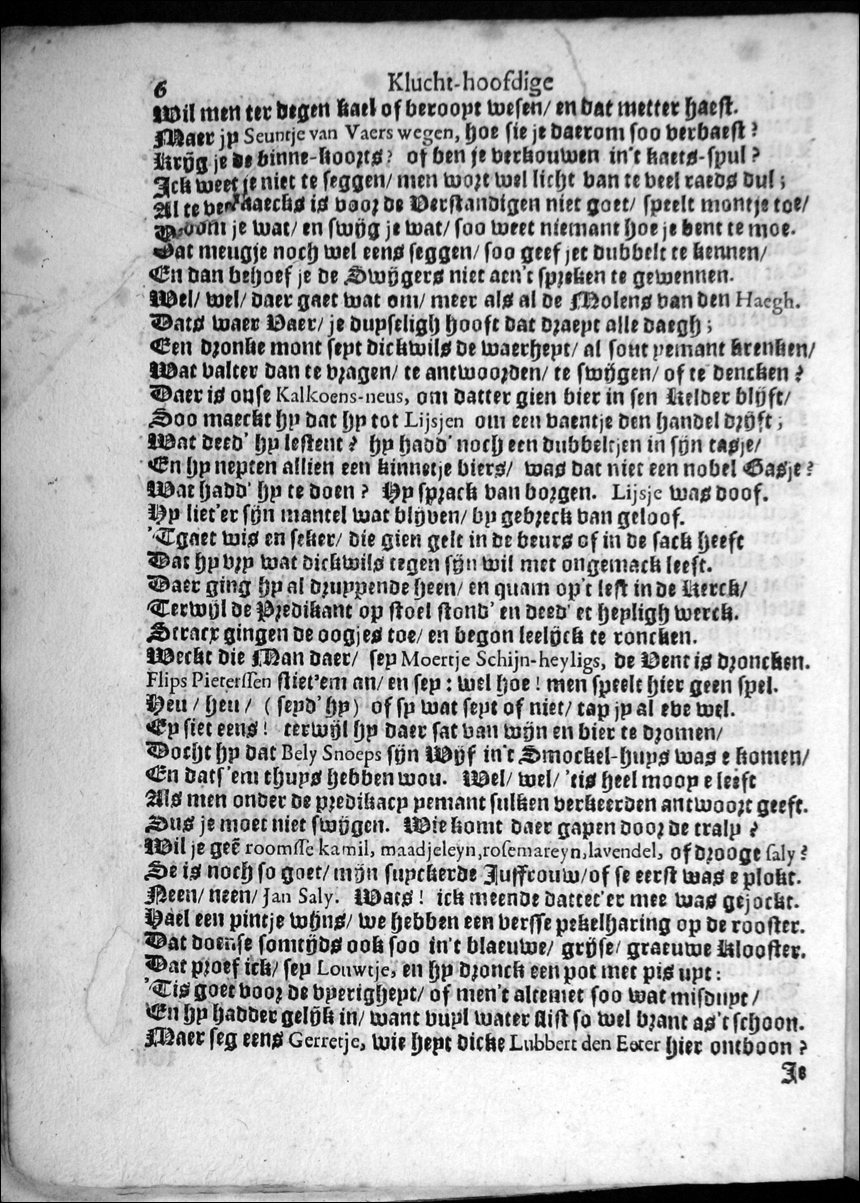 6 Klucht-hoofdige
Wil men ter degen kael of beroopt wesen/ en dat metter haest.
Maer jy Seuntje van Vaers wegen, hoe sie je daerom soo verbaest?
Krijg je de binne-koorts? of ben je verkouwen in't kaets-spul?
Ick weet je niet te seggen/ men wort wel licht van te veel raeds dul;
Al te snaecks is voor de Verstandigen niet goet/ speelt montje toe/
je wat/ en swijg je wat/ soo weet niemant hoe je bent te moe.
Dat meugje noch wel eens seggen/ soo geef jet dubbelt te kennen/
En dan behoef je de Swijgers niet aen't spreken te gewennen.
Wel/ wel/ daer gaet wat om/ meer als al de Molens van den Haegh.
Dats waer Vaer/ je duyseligh hooft dat draeyt alle daegh;
Een dronke mont seyt dickwils de waerheyt/ al sout yemant krenken/
Wat valter dan te vragen/ te antwoorden/ te swijgen/ of te dencken?
Daer is onse Kalkoens-neus, om datter gien bier in sen Kelder blijft/
Soo maeckt hy dat hy tot Lijsjen om een vaentje den handel drijft;
Wat deed' hy lestent? hy hadd' noch een dubbeltjen in sijn tasje/
En hy neyten allien een kinnetje biers/ was dat niet een nobel Gasje?
Wat hadd' hy te doen? Hy sprack van borgen. Lijsje was doof.
Hy liet'er sijn mantel wat blijven/ by gebreck van geloof.
'Tgaet wis en seker/ die gien gelt in de beurs of in de sack heeft
Dat hy vry wat dickwils tegen sijn wil met ongemack leeft.
Daer ging hy al druppende heen/ en quam op't lest in de Kerck/
Terwijl de Predikant op stoel stond' en deed' et heyligh werck.
Stracx gingen de oogjes toe/ en begon leelijck te roncken.
Weckt die Man daer/ sey Moertje Schijn-heyligs, de Vent is droncken.
Flips Pieterssen stiet'em an/ en sey: wel hoe! men speelt hier geen spel.
Heu/ heu/ (seyd' hy) of sy wat seyt of niet/ tap jy al eve wel.
Ey siet eens! terwijl hy daer sat van wijn en bier te dromen/
Docht hy dat Bely Snoeps sijn Wijf in't Smockel-huys was e komen/
En dats'em thuys hebben wou. Wel/ wel/ 'tis heel mooy e leeft
Als men onder de predikacy yemant sulken verkeerden antwoort geeft.
Sus je moet niet swijgen. Wie komt daer gapen door de traly?
Wil je geẽ roomsse kamil, maadjeleyn, rosemareyn, lavendel, of drooge saly?
Se is noch so goet/ mijn suyckerde Juffrouw/ of se eerst was e plokt.
Neen/ neen/ Jan Saly. Waes! ick meende dattet'er mee was gejockt.
Hael een pintje wijns/ we hebben een versse pekelharing op de rooster.
Dat doense somtijds ook soo in't blaeuwe/ grijse/ graeuwe Klooster.
Dat proef ick/ sey Louwtje, en hy dronck een pot met pis uyt:
'Tis goet voor de vyerigheyt/ of men't altemet soo wat misduyt/
En hy hadder gelijk in/ want vuyl water slist so wel brant as't schoon.
Maer seg eens Gerretje, wie heyt dicke Lubbert den Eeter hier ontboon?
Is